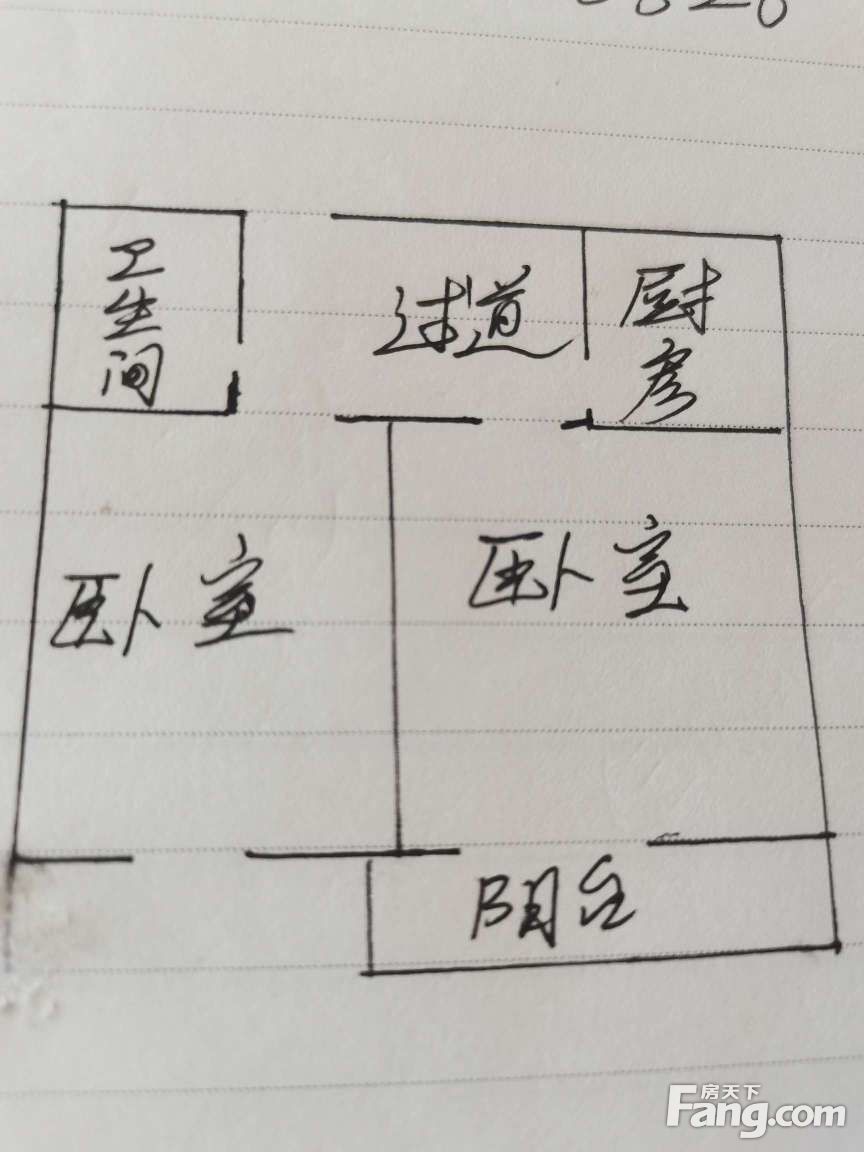 卫生间
过道
厨房
卧室
卧室
阳台
房天下
Fang.com